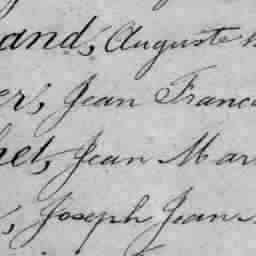 and, Auguste
er, Jean Franc
het, Jean Mar
, Joseph Jean